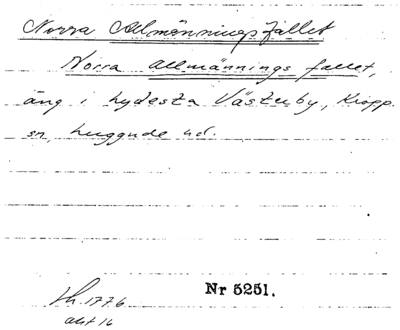 Norra Allmänningsfallet
Norra Allmännings fallet,
äng i Lydesta Västerby, Kropp.
sn, Luggude hd.
Nr 5251.
Lh. 1776
akt 16